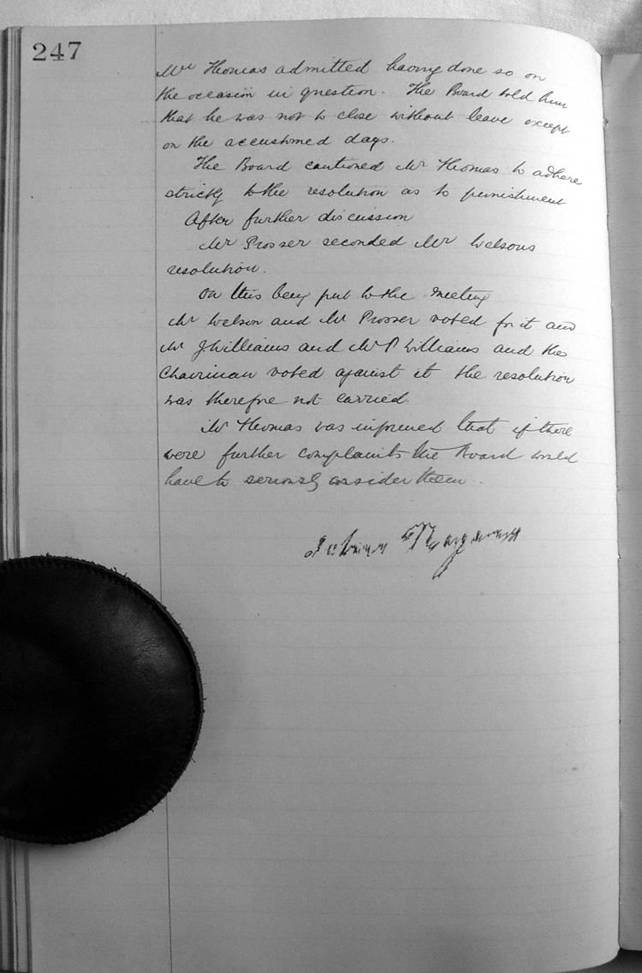 247
Mr Thomas admitted having done so on
the occasion in question. The Board told him
that he was not to close without leave except
on the accustomed days.
The Board cautioned Mr Thomas to adhere
strictly to the resolution as to punishment
After further discussion
Mr Prosser seconded Mr Welsons
resolution.
On this being put to the meeting
Mr Welson and Mr Prosser voted for it and
Mr J Williams and Mr P Williams and the
Chairman voted against it the resolution
was therefore not carried.
Mr Thomas was informed that if there
were further complaints the Board would
have to seriously consider them.